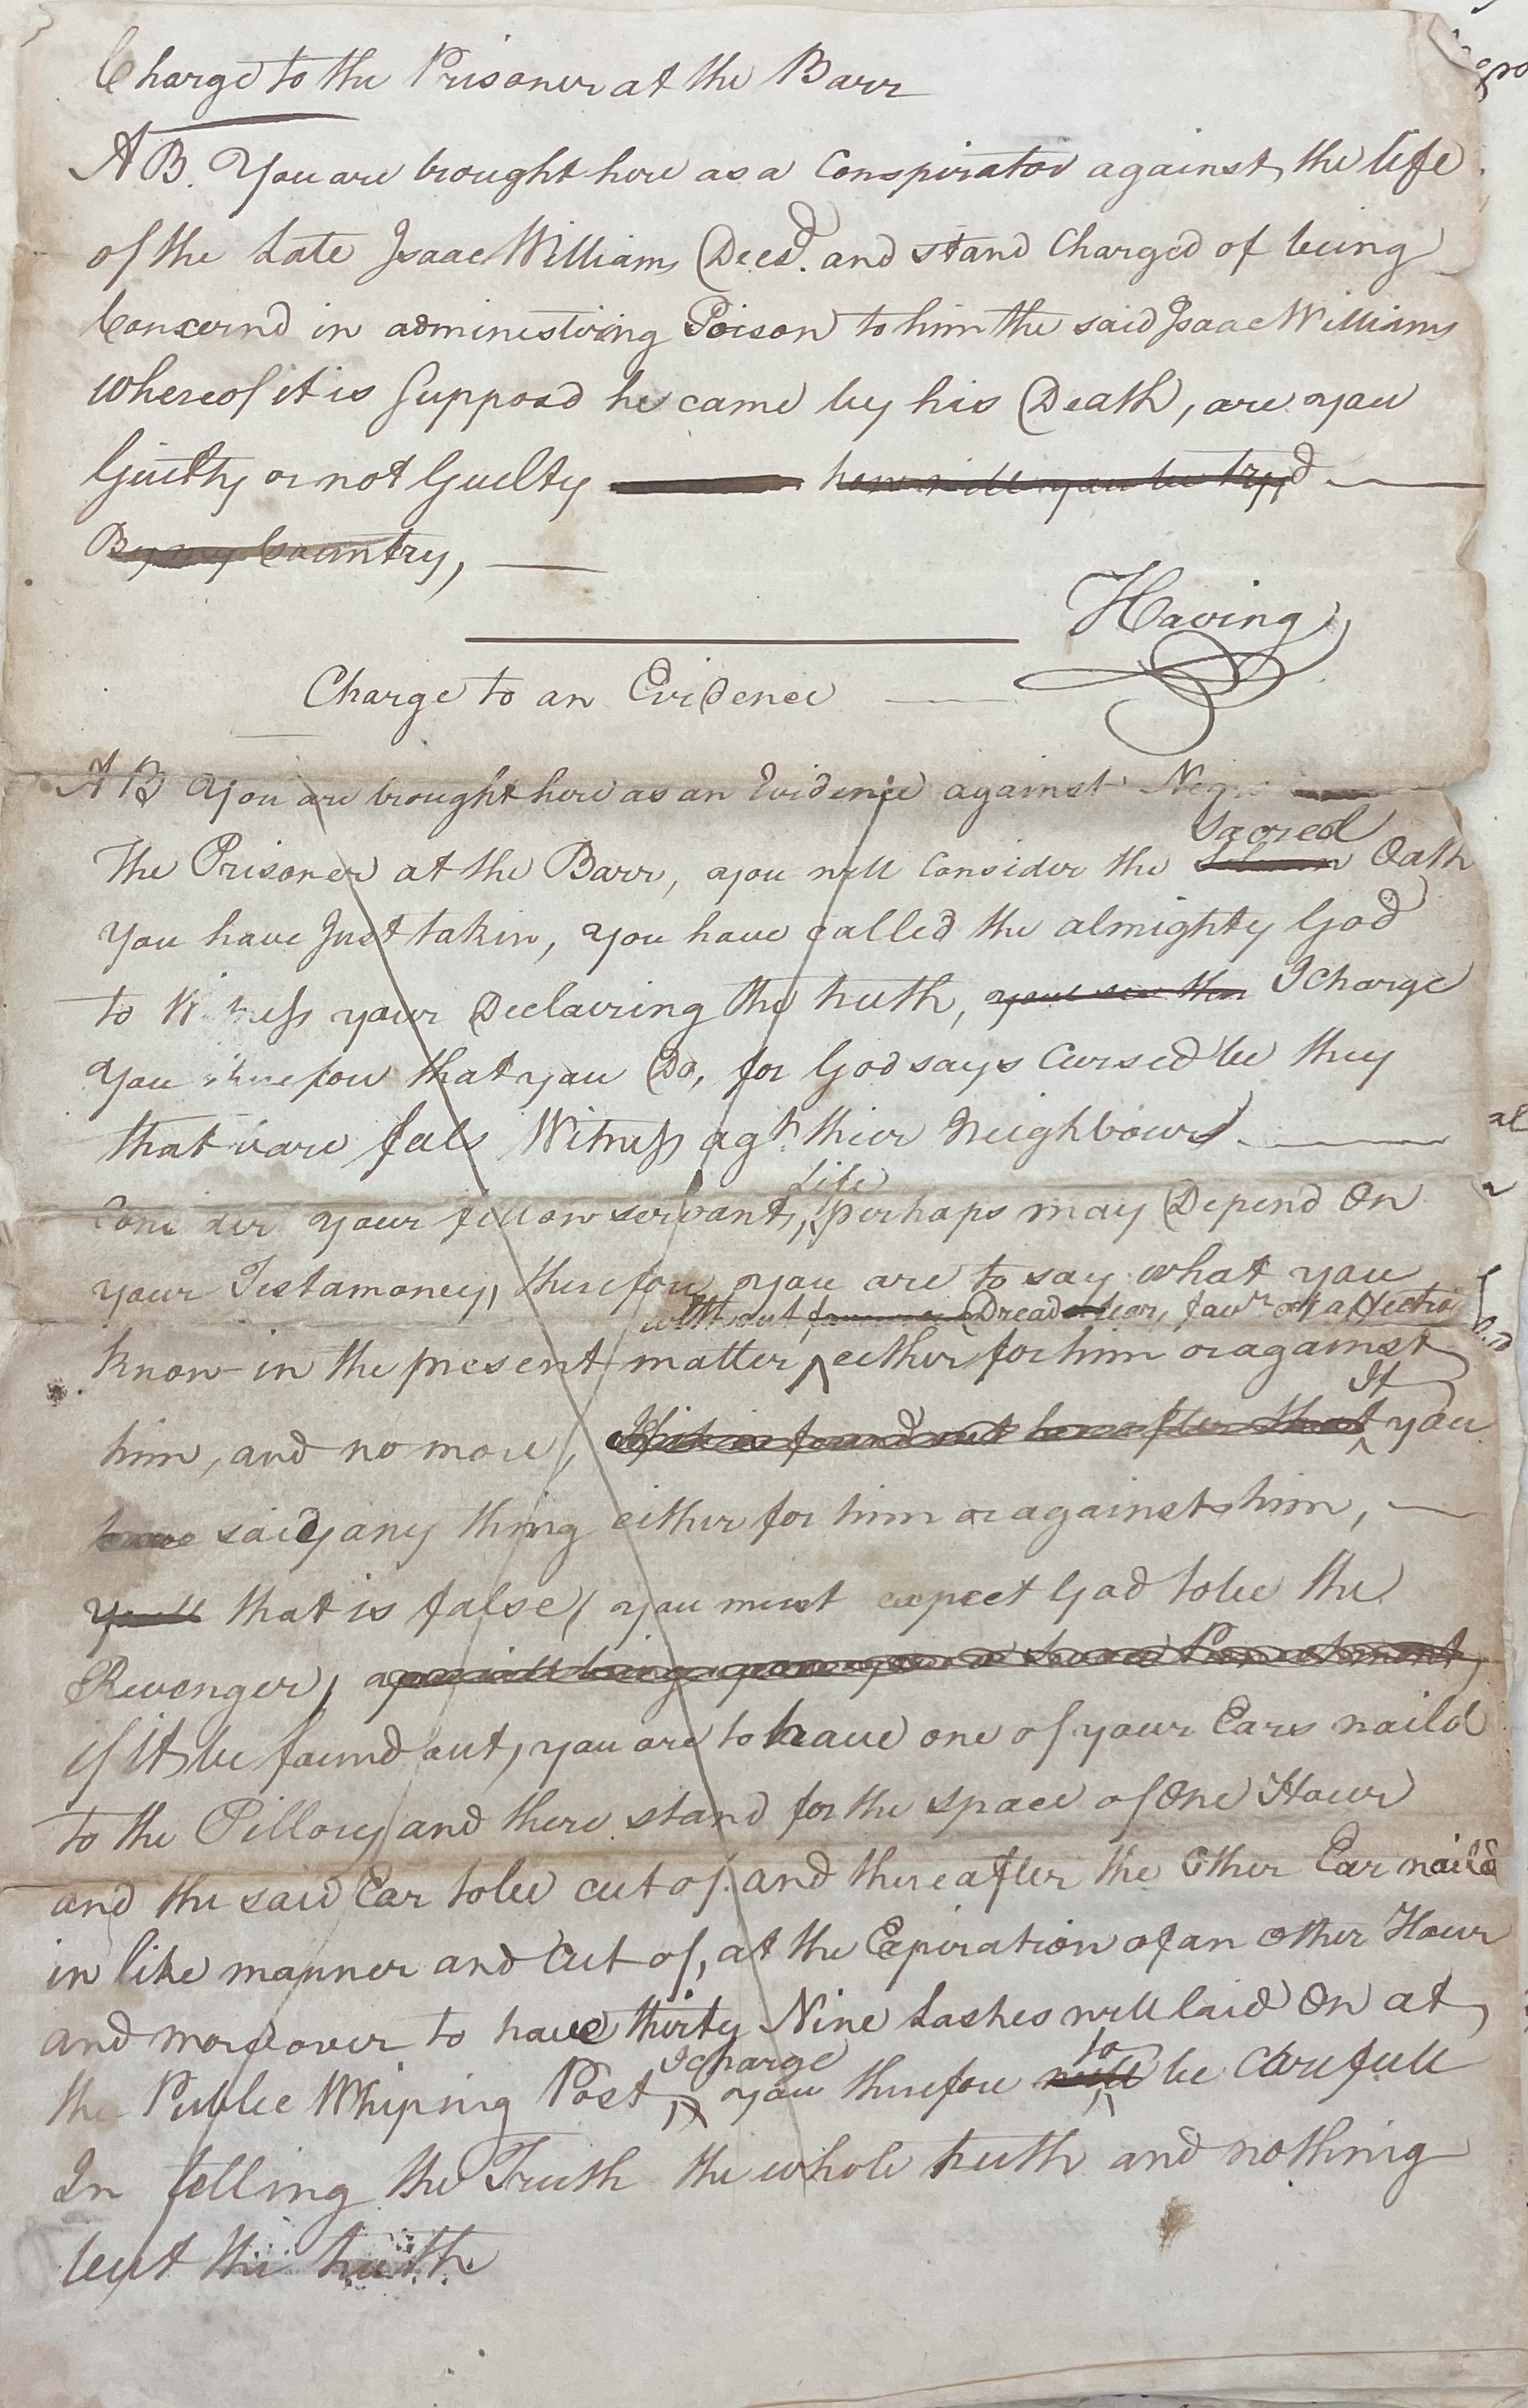 Charge to the Prisoner at the Barr
A B. You are brought here as a Conspirator against the life
of the Late Isaac Williams Decsd. and stand Charged of being
Concernd in administring Poison to him the said Isaac Williams
whereof it is Supposd he came by his Death, are you
Guilty or not Guilty how will you be tryd
By my Country,
Having
Charge to an Evidence
A B You are brought here as an Evidence against Negro
The Prisoner at the Barr, you will Consider the Sacred Oath
You have Just taken, You have called the almighty God
to Witness your Declairing the truth, I charge
you therefore that you Do, for God says Cursed be they
that bare fals Witness agt. thier Neighbours.
Consider your fellow servants, Life perhaps may Depend On
your Testamoney, therefore you are to say what you
without Dread fear, favr. or affection
know in the present matter either for him or against
him, and no more, If it is found out hereafter that If you
have said say any thing either for him or against him,
that is false, you must expect God to be the
Revenger,
if it be found out, you are to have one of your Ears naild
to the Pillory and there stand for the space of One Hour
and the said Ear to be cut of, and thereafter the Other Ear naild
in like manner and Cut of, at the Expiration of an other Hour
and moreover to have thirty Nine Lashes well laid On at
the Publec Whiping Post, I charge you therefore will to be Carefull
In telling the Truth the whole truth and nothing
but the truth